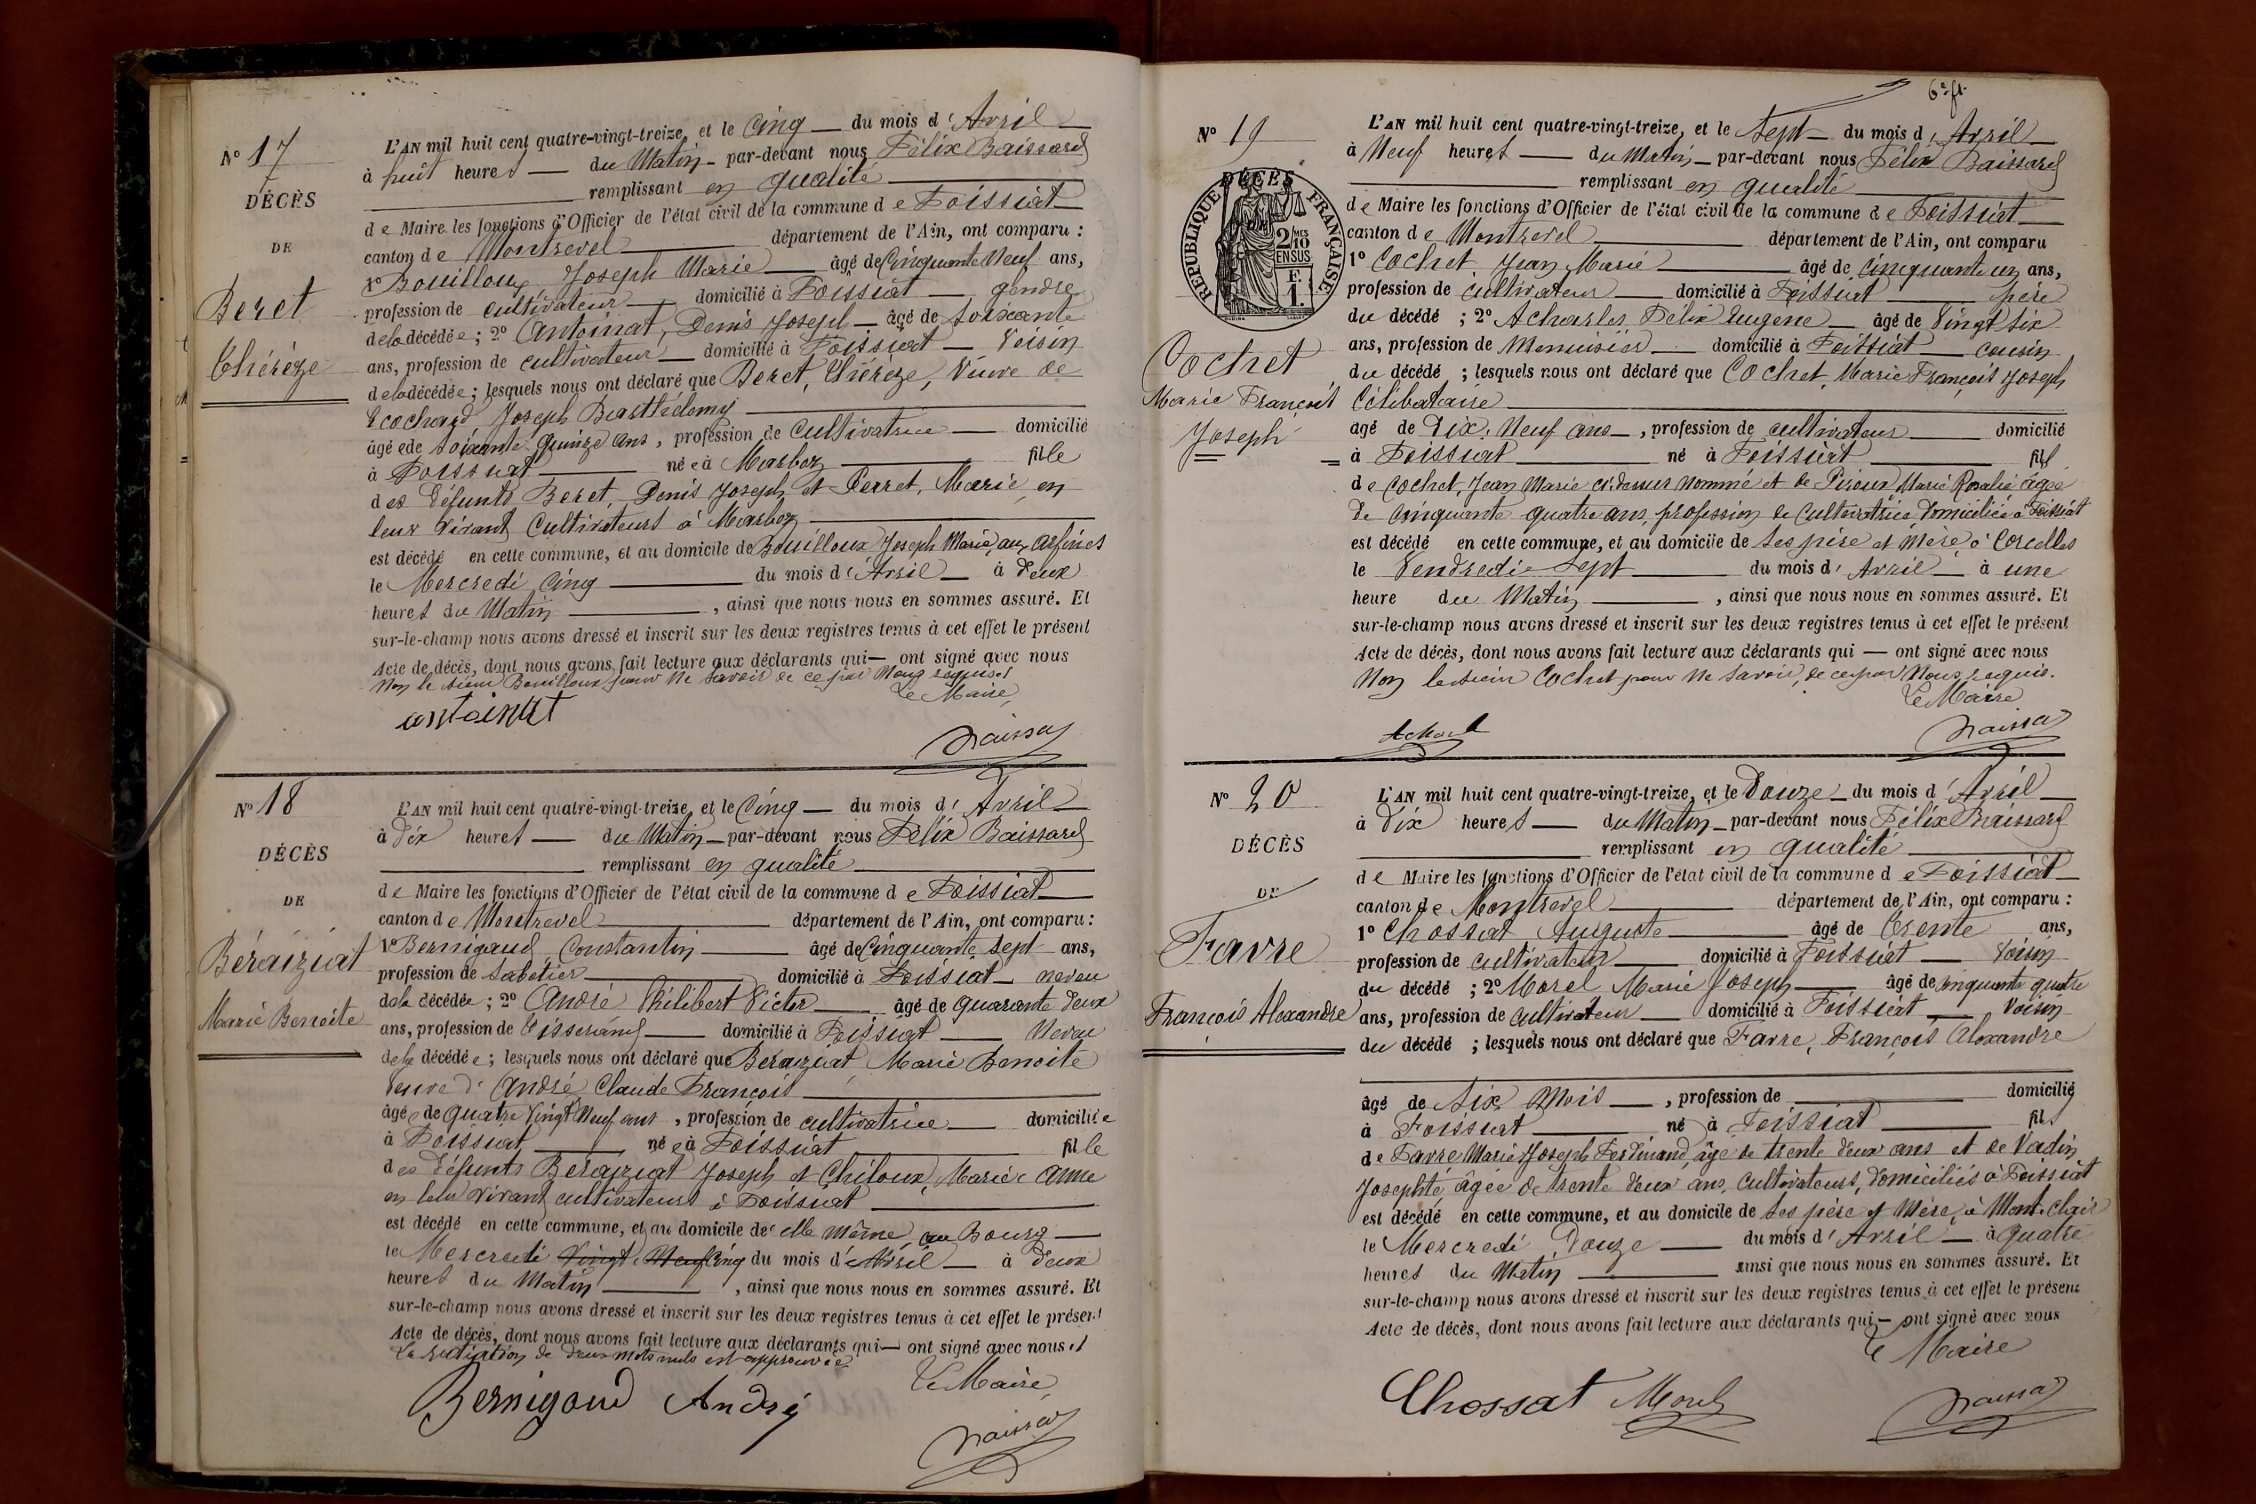 N° 17
DÉCÈS
DE
Beret
Thérèze
L'AN mil huit cent quatre-vingt-treize, et le Cinq — du mois d'Avril —
à huit heures — du Matin — par-devant nous Félix Baissard
remplissant en qualité
de Maire les fonctions d'Officier de l'état civil de la commune de Foissiat
canton de Montrevel — département de l'Ain, ont comparu :
1° Bouilloux, Joseph Marie — âgé de Cinquante Neuf ans,
profession de cultivateur — domicilié à Foissiat — gendre
de la décédée ; 2° Antoinat, Denis Joseph — âgé de soixante
ans, profession de cultivateur — domicilié à Foissiat — Voisin
de la décédée ; lesquels nous ont déclaré que Beret, Thérèze, Veuve de
Ecochard Joseph Barthélemy
âgée de soixante quinze ans, profession de Cultivatrice — domicilié
à Foissiat — née à Marboz — fille
des défunts Beret, Denis Joseph et Perret, Marie en
leur vivant Cultivateurs à Marboz
est décédé en cette commune, et au domicile de Bouilloux Joseph Marie, aux
le Mercredi Cinq — du mois d'Avril — à deux
heures du Matin — , ainsi que nous nous en sommes assuré. Et
sur-le-champ nous avons dressé et inscrit sur les deux registres tenus à cet effet le présent
Acte de décès, dont nous avons fait lecture aux déclarants qui — ont signé avec nous
Non le sieur Bouilloux pour ne savoir de ce par Nous requis
Le Maire,
antoinat
Baissard
N° 18
DÉCÈS
DE
Béraiziat
Marie Benoite
L'AN mil huit cent quatre-vingt-treize, et le Cinq — du mois d'Avril
à dix heures — du Matin — par-devant nous Félix Baissard
remplissant en qualité
de Maire les fonctions d'Officier de l'état civil de la commune de Foissiat
canton de Montrevel — département de l'Ain, ont comparu :
1° Bernigaud Constantin — âgé de Cinquante sept ans,
profession de Sabotier — domicilié à Foissiat — neveu
de la décédée ; 2° André Philibert Victor — âgé de quarante deux
ans, profession de Tisserand — domicilié à Foissiat — Neveu
de la décédée ; lesquels nous ont déclaré que Beraiziat Marie Benoite
Veuve d'André Claude François
âgée de quatre Vingt Neuf ans, profession de cultivatrice — domiciliée
à Foissiat — née à Foissiat — fille
des défunts Béraiziat Joseph et Chiloux, Marie Anne
en leur vivant cultivateurs à Foissiat
est décédé en cette commune, et au domicile de elle même, au Bourg
le Mercredi Vingt Neuf Cinq du mois d'Avril — à deux
heures du Matin — , ainsi que nous nous en sommes assuré. Et
sur-le-champ nous avons dressé et inscrit sur les deux registres tenus à cet effet le présent
Acte de décès, dont nous avons fait lecture aux déclarants qui — ont signé avec nous
La radiation de deux mots nuls est approuvée
Le Maire,
Bernigaud André
Baissard
6e ft
N° 19
DÉCÈS
RÉPUBLIQUE FRANÇAISE
2/10 MES
EN SUS
F.
1.
Cochet
Marie François
Joseph
L'AN mil huit cent quatre-vingt-treize, et le Sept — du mois d'Avril —
à Neuf heures — du Matin — par-devant nous Félix Baissard
remplissant en qualité
de Maire les fonctions d'Officier de l'état civil de la commune de Foissiat
canton de Montrevel — département de l'Ain, ont comparu
1° Cochet Jean Marie — âgé de Cinquante un ans,
profession de cultivateur — domicilié à Foissiat — père
du décédé ; 2° Acharles Félix Eugène — âgé de Vingt six
ans, profession de Menuisier — domicilié à Foissiat — cousin
du décédé ; lesquels nous ont déclaré que Cochet, Marie François Joseph
Célibataire
âgé de Dix Neuf ans —, profession de cultivateur — domicilié
à Foissiat — né à Foissiat — fils
de Cochet, Jean Marie ci-dessus nommé et de Piroux Marie Rosalie âgée
de cinquante quatre ans, profession de Cultivatrice, domiciliée à Foissiat
est décédé en cette commune, et au domicile de ses père et mère à Corcelles
le Vendredi Sept — du mois d'Avril — à une
heure du Matin — , ainsi que nous nous en sommes assuré. Et
sur-le-champ nous avons dressé et inscrit sur les deux registres tenus à cet effet le présent
Acte de décès, dont nous avons fait lecture aux déclarants qui — ont signé avec nous
Non le sieur Cochet pour ne savoir, de ce par Nous requis.
Le Maire
Baissard
N° 20
DÉCÈS
DE
Favre
François Alexandre
L'AN mil huit cent quatre-vingt-treize, et le Douze — du mois d'Avril —
à dix heures — du Matin — par-devant nous Félix Baissard
remplissant en qualité
de Maire les fonctions d'Officier de l'état civil de la commune de Foissiat
canton de Montrevel — département de l'Ain, ont comparu :
1° Chossat Auguste — âgé de Trente ans,
profession de cultivateur — domicilié à Foissiat — Voisin
du décédé ; 2° Morel Marie Joseph — âgé de cinquante quatre
ans, profession de cultivateur — domicilié à Foissiat — Voisin
du décédé ; lesquels nous ont déclaré que Favre, François Alexandre
âgé de six Mois —, profession de — domicilié
à Foissiat — né à Foissiat — fils
de Favre Marie Joseph Ferdinand, âgé de trente deux ans et de Vadin
Josephte âgée de trente deux ans, Cultivateurs, domiciliés à Foissiat
est décédé en cette commune, et au domicile de ses père et Mère, à Mont-clair
le Mercredi Douze — du mois d'Avril — à quatre
heures du Matin — ainsi que nous nous en sommes assuré. Et
sur-le-champ nous avons dressé et inscrit sur les deux registres tenus à cet effet le présent
Acte de décès, dont nous avons fait lecture aux déclarants qui — ont signé avec nous
Le Maire
Chossat Morel
Baissard